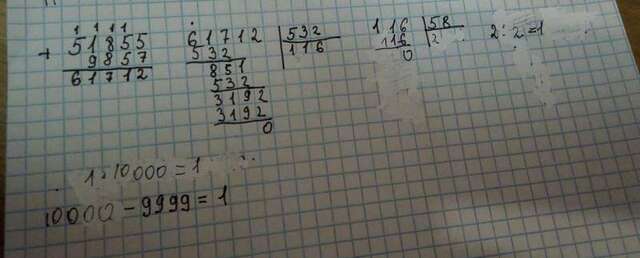 1 1 1 1
+ 51855
9857
61712
61712 | 532
532 | 116
851
532
3192
3192
0
116 | 58
116 | 2
0
2 : 2 = 1
1 · 10000 = 1
10000 - 9999 = 1